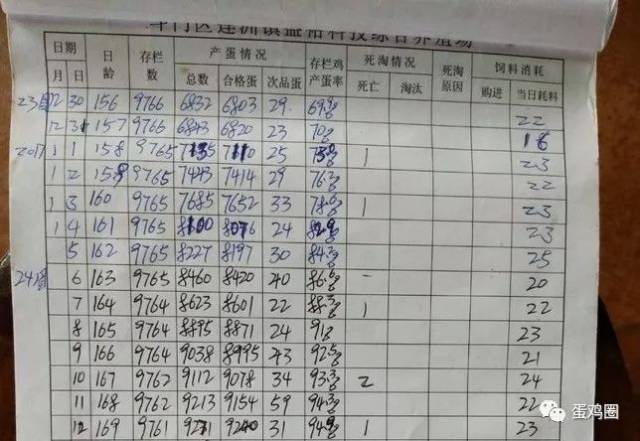 斗门区莲洲镇益裕科技综合养殖场
日期 日龄 存栏数 产蛋情况 存栏鸡产蛋率 死淘情况 死淘原因 饲料消耗
月 日 总数 合格蛋 次品蛋 死亡 淘汰 购进 当日耗料
12 30 156 9766 6832 6803 29 22
12 31 157 9766 6843 6820 23 18
2017 1 1 158 9765 25 1 23
1 2 159 9765 7443 7414 29 76.2 22
1 3 160 9765 7685 7652 33 78.6 1 23
1 4 161 9765 8100 8076 24 23
5 162 9765 8227 8197 30 84.3 25
6 163 9765 8460 8420 40 86.6 20
7 164 9764 8623 8601 22 88.3 1 22
8 165 9764 8895 8871 24 91 23
9 166 9764 9038 8995 43 92.5 21
10 167 9762 9112 9078 34 93.3 2 24
11 168 9762 9213 9154 59 94.3 22
12 169 9761 9271 9240 31 94.9 1 23
蛋鸡圈